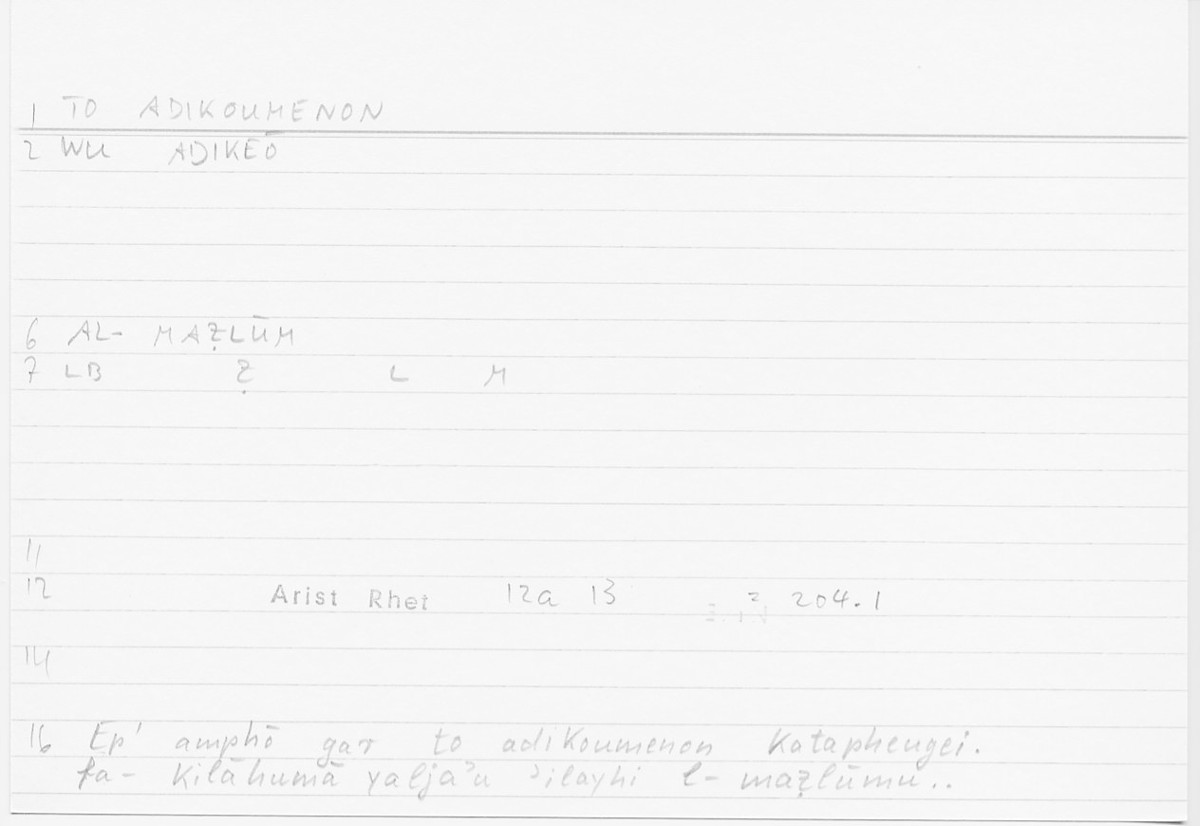 1 TO ADIKOUMENON
2 WU ADIKEŌ
6 AL- MAẒLŪM
7 LB Ẓ L M
11
12 Arist Rhet 12a 13 = 204.1
14
16 Ep' amphō gar to adikoumenon Kataphengei.
fa- Kilāhumā yalja'u 'ilayhi l- maẓlūmu..